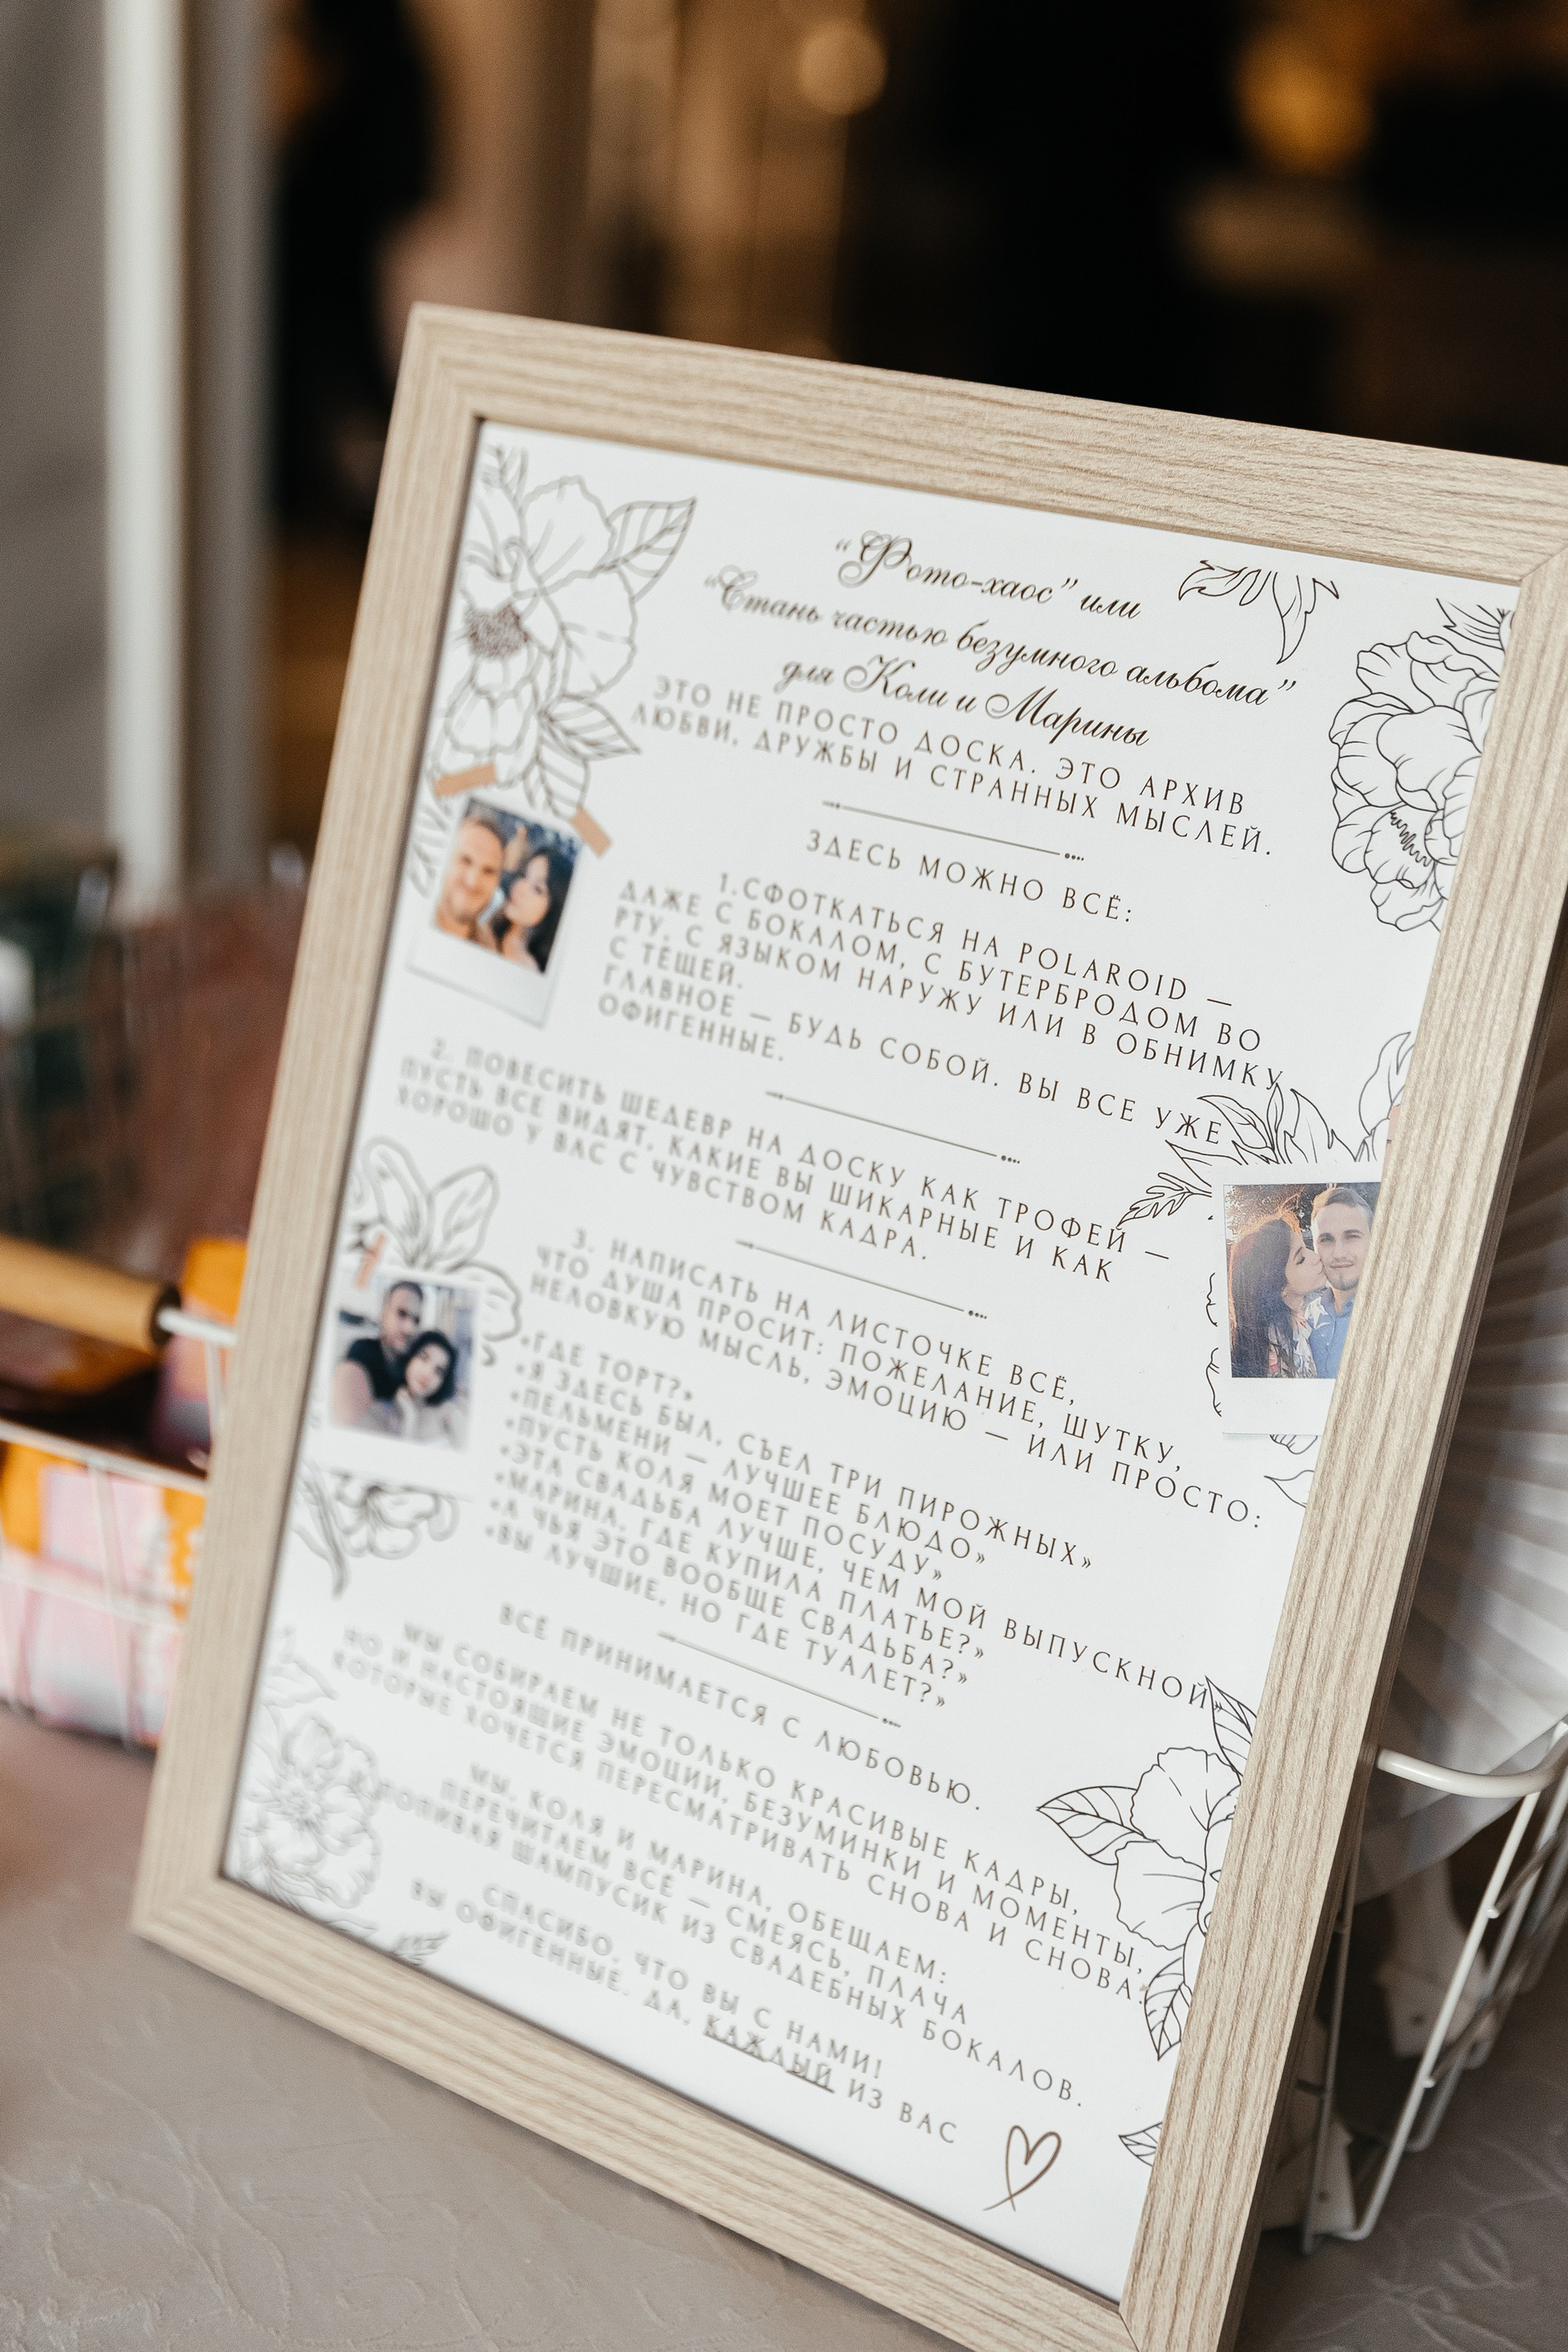 “Фото-хаос” или
“Стань частью безумного альбома”
для Коли и Марины
ЭТО НЕ ПРОСТО ДОСКА. ЭТО АРХИВ
ЛЮБВИ, ДРУЖБЫ И СТРАННЫХ МЫСЛЕЙ.
ЗДЕСЬ МОЖНО ВСЁ:
1.СФОТКАТЬСЯ НА POLAROID —
ДАЖЕ С БОКАЛОМ, С БУТЕРБРОДОМ ВО
РТУ, С ЯЗЫКОМ НАРУЖУ ИЛИ В ОБНИМКУ
С ТЕЩЕЙ.
ГЛАВНОЕ — БУДЬ СОБОЙ. ВЫ ВСЕ УЖЕ
ОФИГЕННЫЕ.
2. ПОВЕСИТЬ ШЕДЕВР НА ДОСКУ КАК ТРОФЕЙ —
ПУСТЬ ВСЕ ВИДЯТ, КАКИЕ ВЫ ШИКАРНЫЕ И КАК
ХОРОШО У ВАС С ЧУВСТВОМ КАДРА.
3. НАПИСАТЬ НА ЛИСТОЧКЕ ВСЁ,
ЧТО ДУША ПРОСИТ: ПОЖЕЛАНИЕ, ШУТКУ,
НЕЛОВКУЮ МЫСЛЬ, ЭМОЦИЮ — ИЛИ ПРОСТО:
«ГДЕ ТОРТ?»
«Я ЗДЕСЬ БЫЛ, СЪЕЛ ТРИ ПИРОЖНЫХ»
«ПЕЛЬМЕНИ — ЛУЧШЕЕ БЛЮДО»
«ПУСТЬ КОЛЯ МОЕТ ПОСУДУ»
«ЭТА СВАДЬБА ЛУЧШЕ, ЧЕМ МОЙ ВЫПУСКНОЙ»
«МАРИНА, ГДЕ КУПИЛА ПЛАТЬЕ?»
«А ЧЬЯ ЭТО ВООБЩЕ СВАДЬБА?»
«ВЫ ЛУЧШИЕ, НО ГДЕ ТУАЛЕТ?»
ВСЁ ПРИНИМАЕТСЯ С ЛЮБОВЬЮ.
МЫ СОБИРАЕМ НЕ ТОЛЬКО КРАСИВЫЕ КАДРЫ,
НО И НАСТОЯЩИЕ ЭМОЦИИ, БЕЗУМИНКИ И МОМЕНТЫ,
КОТОРЫЕ ХОЧЕТСЯ ПЕРЕСМАТРИВАТЬ СНОВА И СНОВА.
МЫ, КОЛЯ И МАРИНА, ОБЕЩАЕМ:
ПЕРЕЧИТАЕМ ВСЁ — СМЕЯСЬ, ПЛАЧА
И ПОПИВАЯ ШАМПУСИК ИЗ СВАДЕБНЫХ БОКАЛОВ.
СПАСИБО, ЧТО ВЫ С НАМИ!
ВЫ ОФИГЕННЫЕ. ДА, КАЖДЫЙ ИЗ ВАС